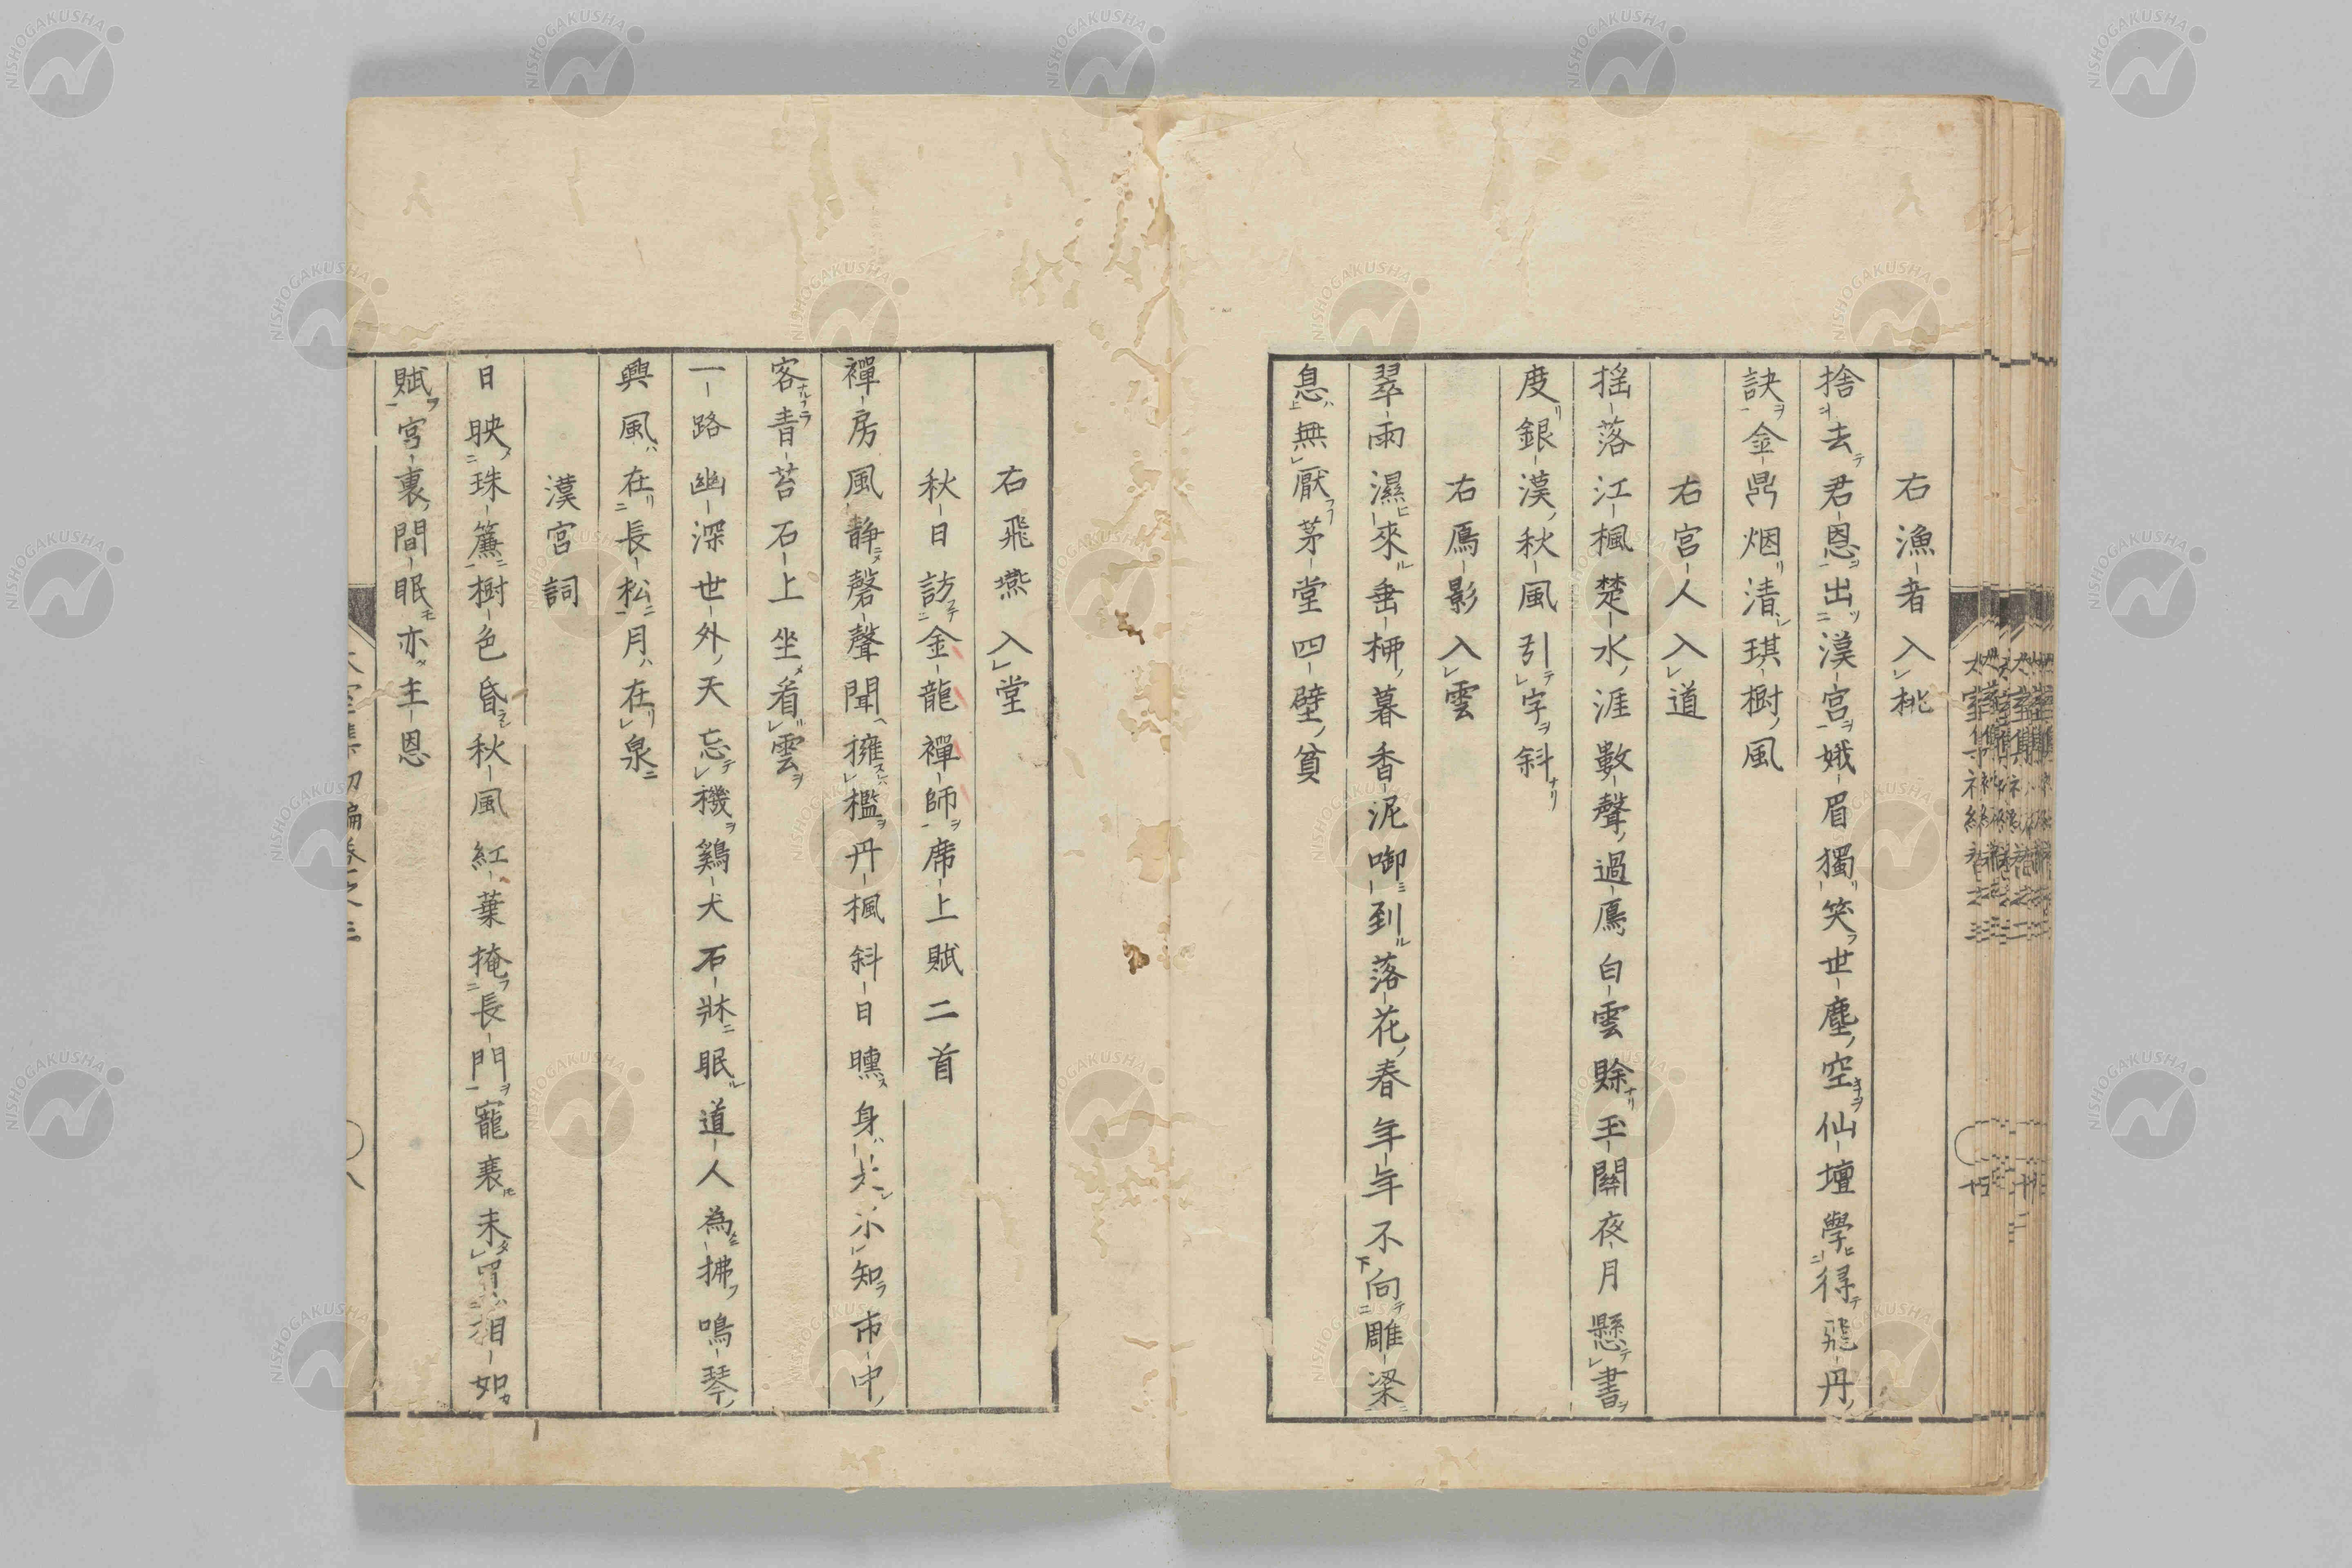 右漁者入桃
捨去君恩出漢宮娥眉獨笑世塵空仙壇學得飛丹
訣金鼎烟清琪樹風
右宮人入道
揺落江楓楚水涯數聲過鴈白雲賖玉關夜月懸書
度銀漢秋風引字斜
右鴈影入雲
翠雨濕來垂栁暮香泥啣到落花春年年不向雕梁
息無厭茅堂四壁貧
右飛燕入堂
秋日訪金龍禪師席上賦二首
禪房風静磬聲聞擁檻丹楓斜日曛身知市中
客青苔石上坐看雲
一路幽深世外天忘機鷄犬石牀眠道人為拂鳴琴
興風在長松月在泉
漢宮詞
日映珠簾樹色昏秋風紅葉掩長門寵衰未買相如
賦宮裏間眠亦主恩
NISHOGAKUSHA